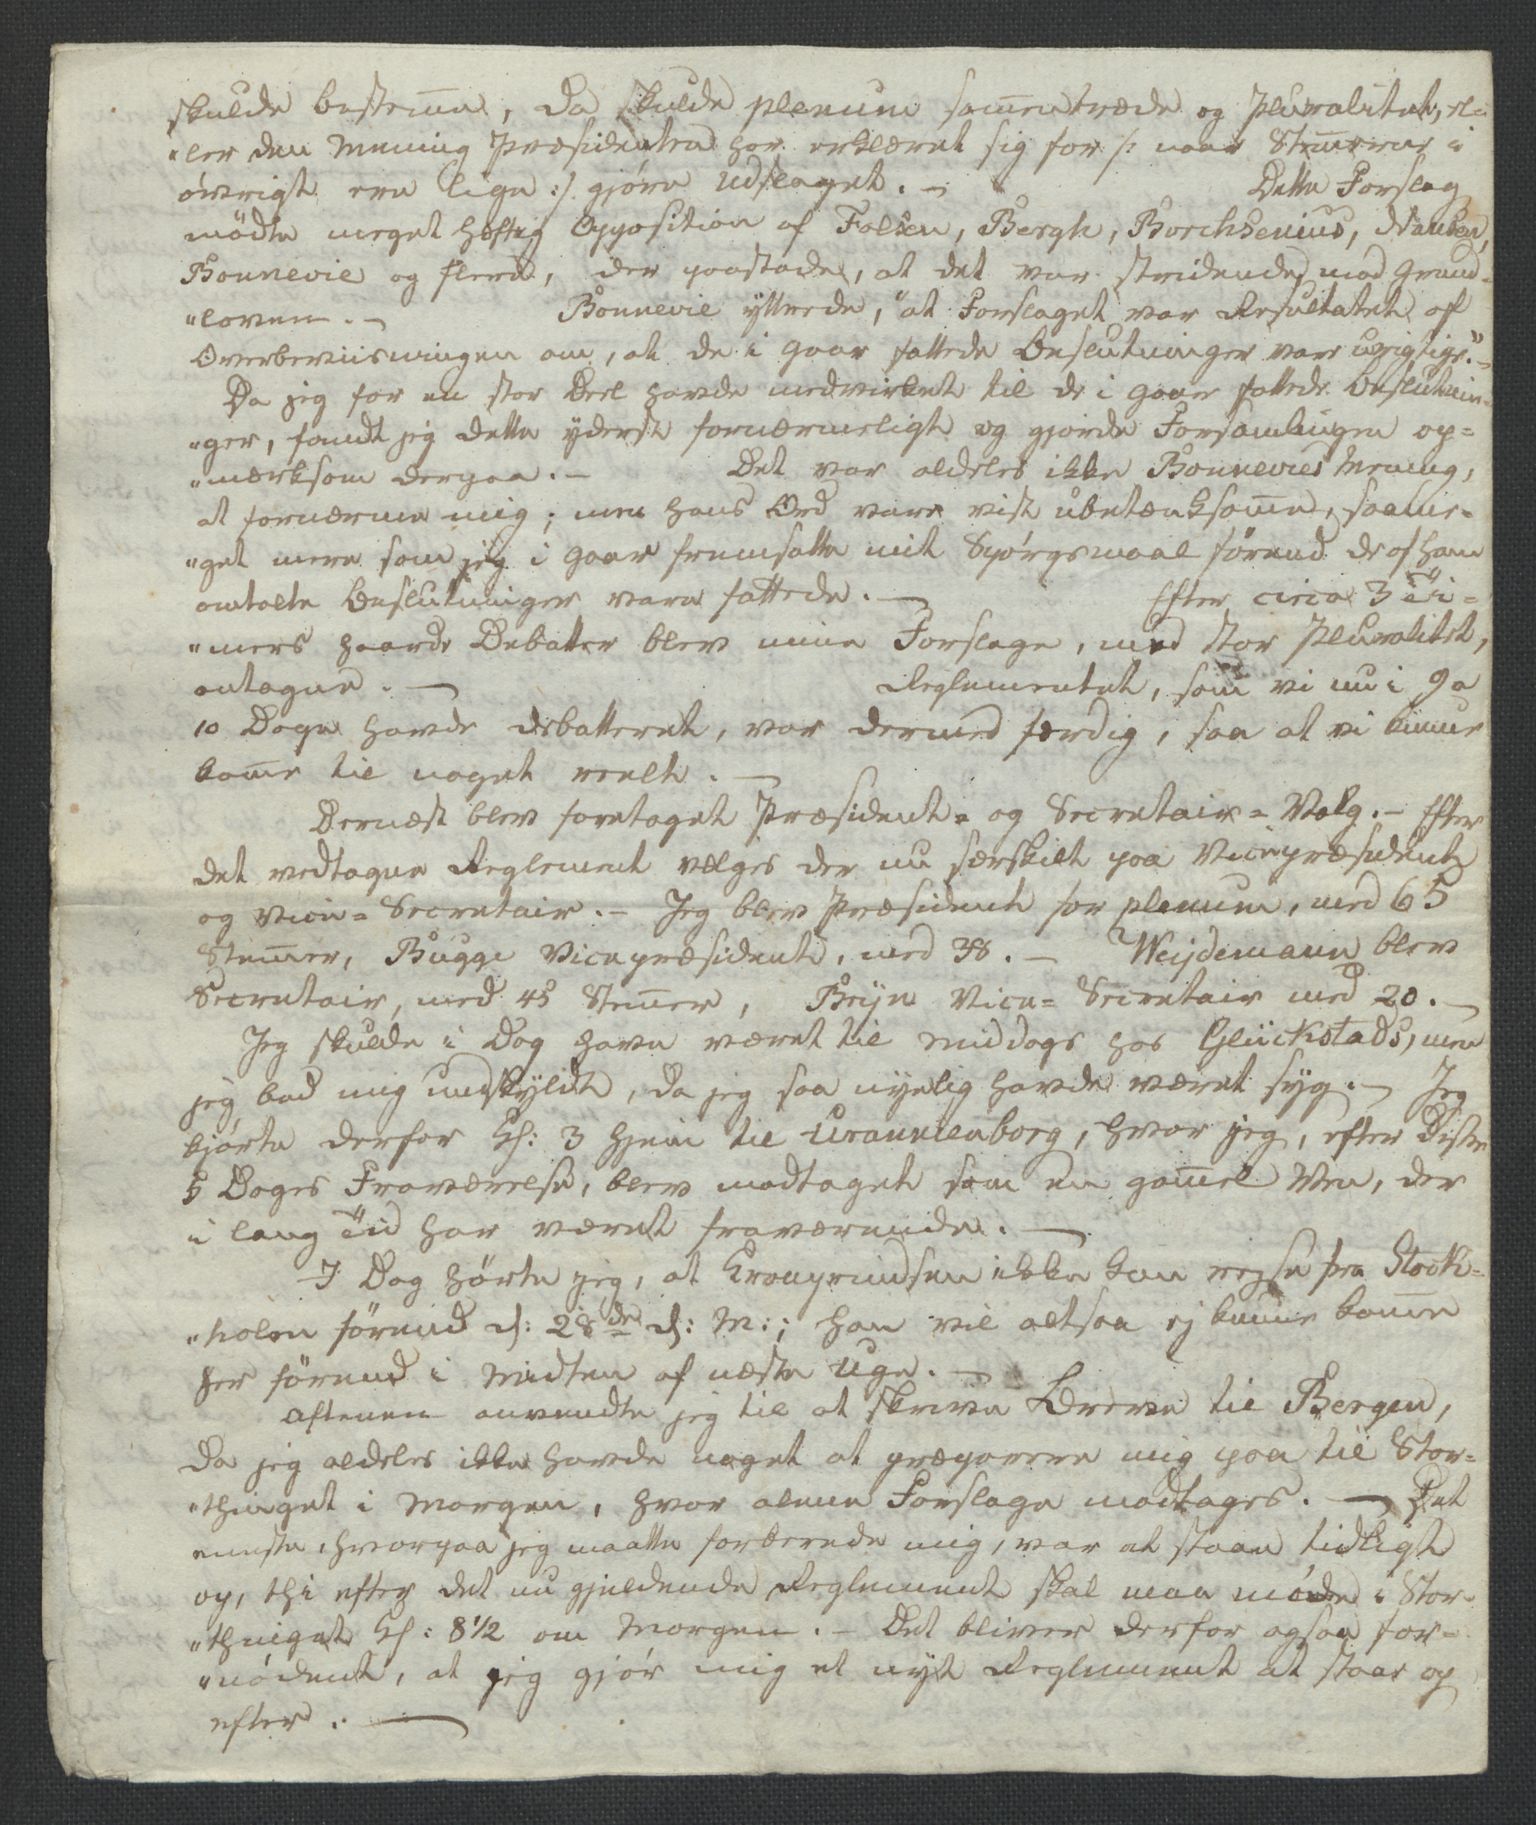 skulde bestem̅e, da skulde plenum sam̅entræde og Pluralitet, el-
"ler den Mening Præsidenten har erklæret sig for /: naar Stem̅erne i
øvrigt ere lige :/ gjøre Udslaget. – Dette Forslag
mødte meget heftig Opposition af Falsen, Bergh, Borchsenius, Nansen,
Bonnevie og flere, der paastode, at det var stridende mod Grund-
"loven. – Bonnevie yttrede, "at Forslaget var Resultatet af
Overbeviisningen om, at de i Gaar fattede Beslutninger vare urigtige." –
Da jeg for en stor Deel havde medvirket til de i Gaar fattede Beslutnin-
"ger, fandt jeg dette yderst fornærmeligt og gjorde Forsamlingen op=
"mærksom derpaa. – Det var aldeles ikke Bonnevies Mening,
at fornærme mig; men hans Ord vare vist ubetænksom̅e, saame=
"get mere som jeg i Gaar fremsatte mit Spørgsmaal førend de af ham
omtalte Beslutninger vare fattede. – Efter circa 3 Ti=
"mers haarde Debatter blev mine Forslage, med stor Pluralitet,
antagne. – Reglementet, som vi nu i 9 a
10 Dage havde debatteret, var dermed færdig, saa at vi kunne
kom̅e til noget reelt. –
Dernæst blev foretaget Præsident= og Secretair=Valg. – Efter
det vedtagne Reglement vælges der nu særskilt paa Vicepræsident
og Vice=Secretair. – Jeg blev Præsident for plenum, med 65
Stem̅er, Bugge Vicepræsident, med 38. – Weydemann blev
Secretair, med 45 Stem̅er, Breyn Vice=Secretair med 20. –
Jeg skulde i Dag have været til Middags hos Glückstads, men
jeg bad mig undskyldt, da jeg saa nyelig havde været syg. – Jeg
kjørte derfor Kl: 3 hjem til Uranienborg, hvor jeg, efter disse
5 Dages Fraværelse, blev modtaget som en gam̅el Ven, der
i lang Tid har været fraværende. –
I Dag hørte jeg, at Kronprindsen ikke kan rejse fra Stock=
"holm førend d: 28de d: M:; han vil altsaa ej kunne kom̅e
her førend i Midten af næste Uge. –
Aftenen anvendte jeg til at skrive Breve til Bergen,
da jeg aldeles ikke havde noget at præparere mig paa til Stor=
"thinget i Morgen, hvor alene Forslage modtages. – Det
eneste, hvorpaa jeg maatte forberede mig, var at staae tidligt
op, thi efter det nu gjeldende Reglement skal man møde i Stor-
"thinget Kl: 8 1/2 om Morgen. – Det bliver derfor ogsaa for=
"nødent, at jeg gjør mig et nyt Reglement at staae op
efter. –